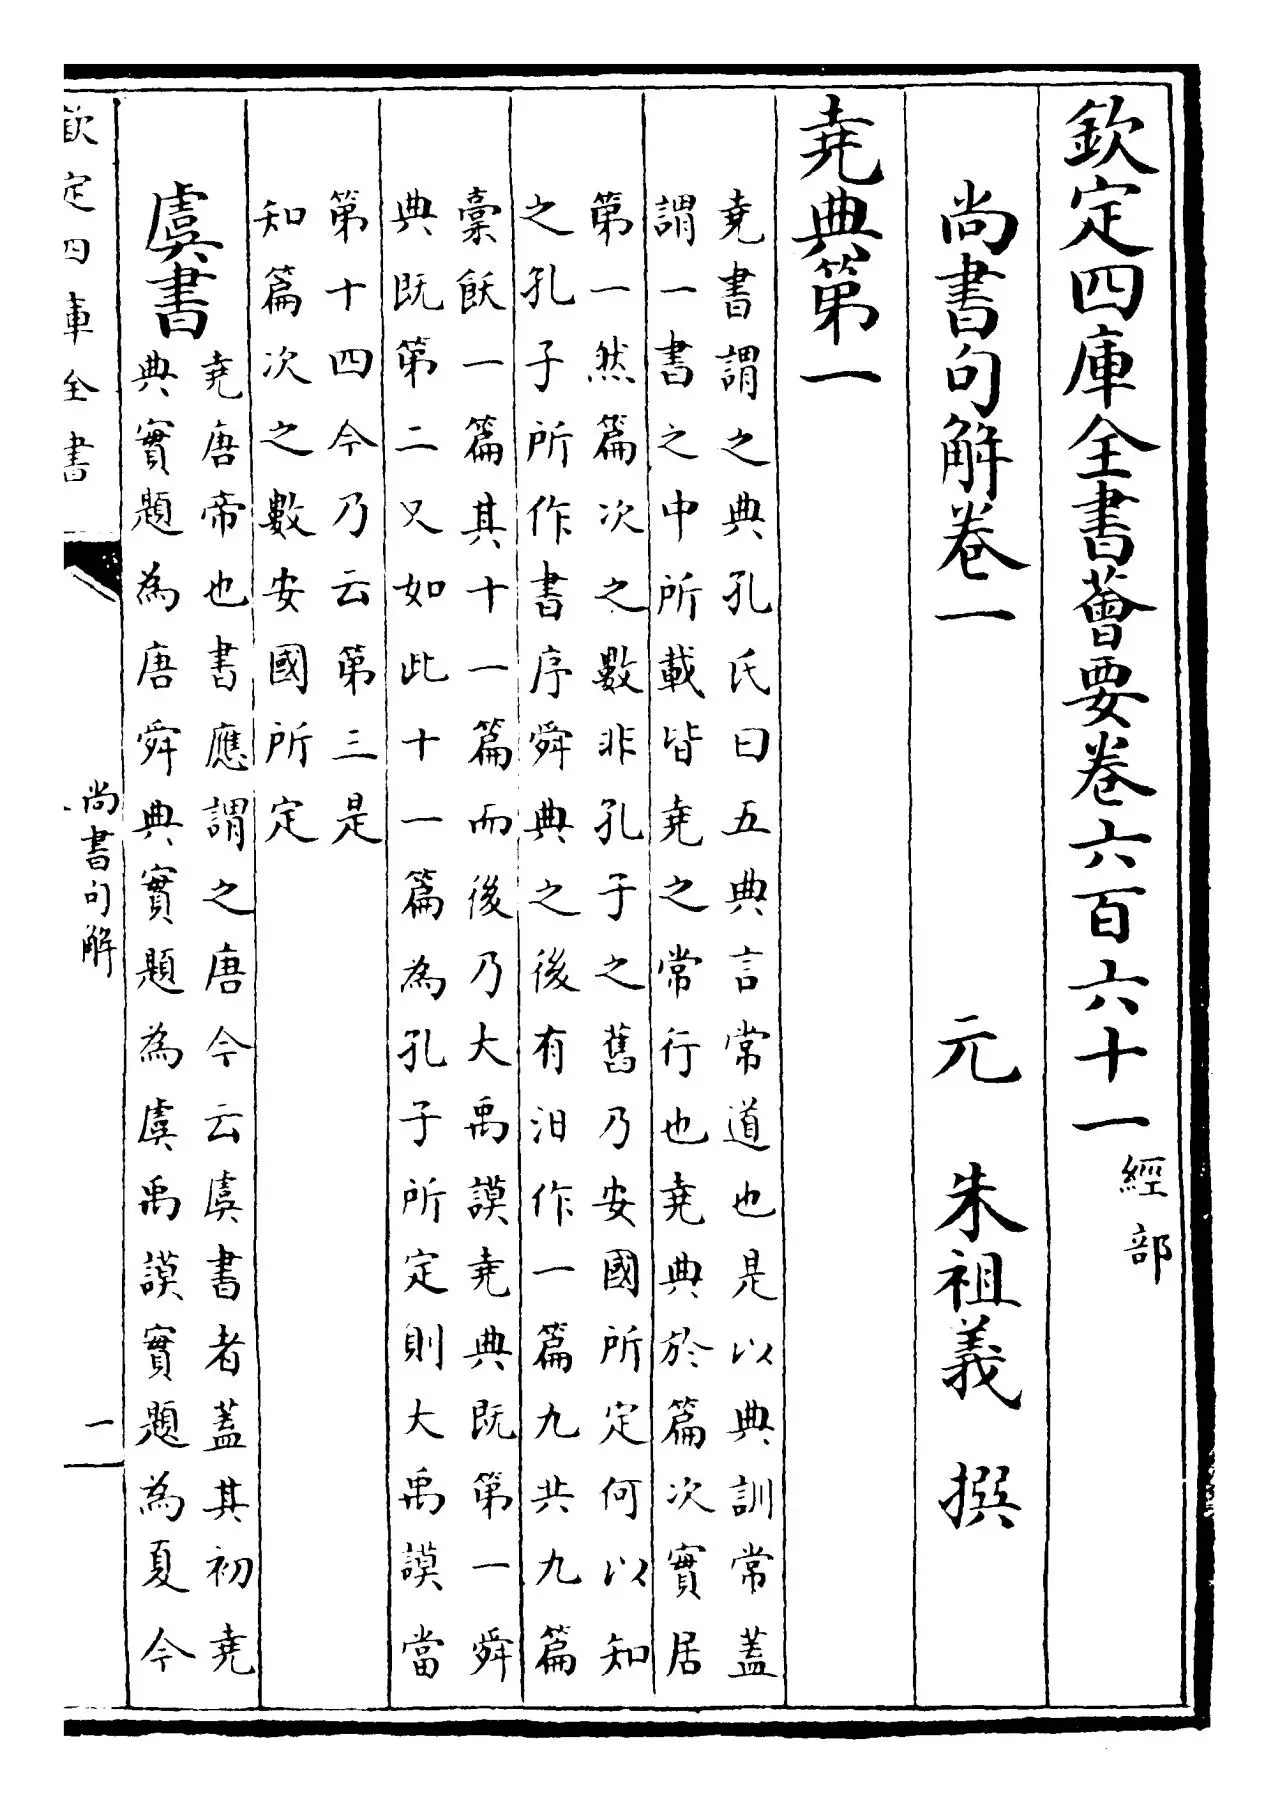 欽定四庫全書薈要卷六百六十一經部
尚書句解卷一
元 朱祖義 撰
堯典第一
堯書謂之典孔氏曰五典言常道也是以典訓常蓋
謂一書之中所載皆堯之常行也堯典於篇次實居
第一然篇次之數非孔子之舊乃安國所定何以知
之孔子所作書序舜典之後有汨作一篇九共九篇
稾飫一篇其十一篇而後乃大禹謨堯典既第一舜
典既第二又如此十一篇為孔子所定則大禹謨當
第十四今乃云第三是
知篇次之數安國所定
虞書
堯唐帝也書應謂之唐今云虞書者蓋其初堯
典實題為唐舜典實題為虞禹謨實題為夏今
欽定四庫全書
尚書句解
一